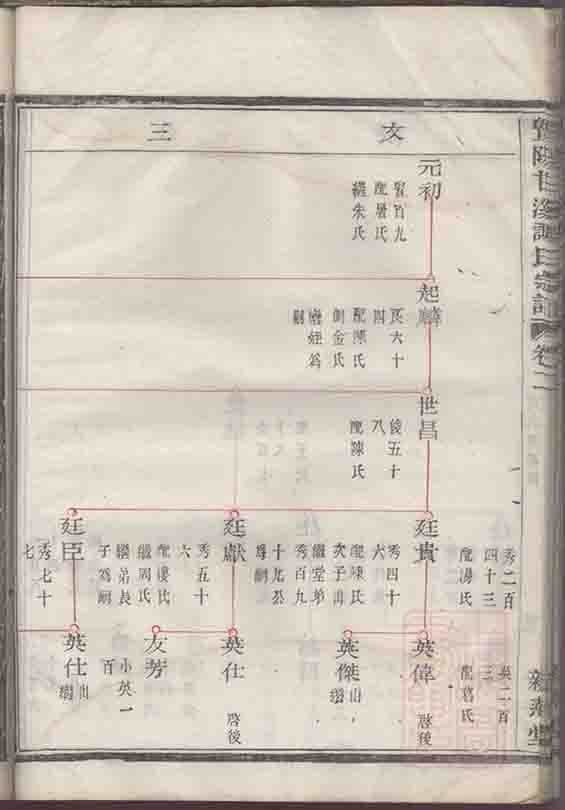 卷二
文
三
元初
賢百九
配屠氏
繼朱氏
起麟
四
配陳氏
側金氏
嗣
世昌
俊五十
八
配陳氏
廷貴
秀四十
六
配陳氏
次子出
繼堂弟
秀百九
十
尊嗣
廷獻
秀五十
六
配樓氏
繼周氏
繼弟長
子為嗣
廷臣
秀七十
七
秀二百
四十三
配湯氏
英偉
啓後
英傑
出
紹
英仕
啓後
友芳
小英一
百
英仕
出
紹
英二百
三
配葛氏